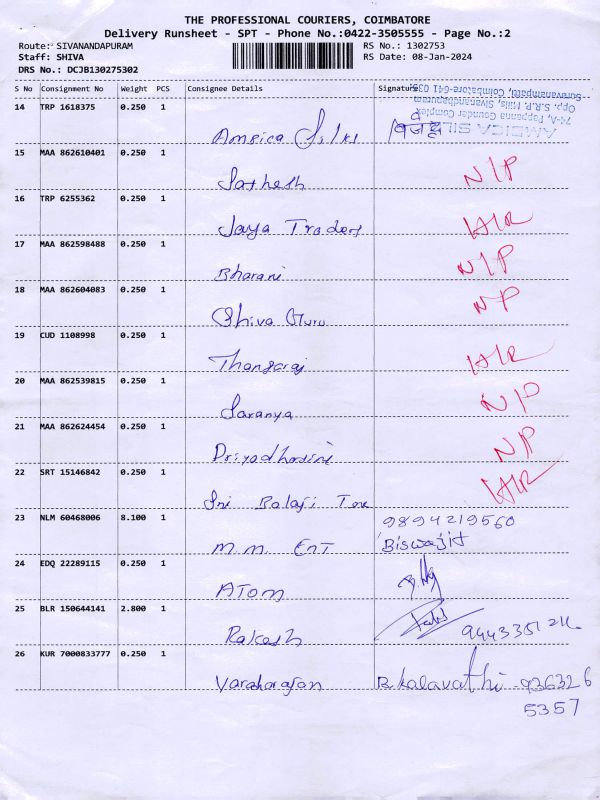 THE PROFESSIONAL COURIERS, COIMBATORE
Delivery Runsheet - SPT - Phone No.:0422-3505555 - Page No.:2
Route: SIVANANDAPURAM RS No.: 1302753
Staff: SHIVA RS Date: 08-Jan-2024
DRS No.: DCJB130275302
S No Consignment No Weight PCS Consignee Details Signature
Saravanampatti, Coimbatore-641 035
Opp. S.R.P. Mills, Sivanandhapuram
74-A, Pappanna Gounder Complex
AMBICA SILKS
14 TRP 1618375 0.250 1
Ambica Silks
15 MAA 862610401 0.250 1
Sathesh N/P
16 TRP 6255362 0.250 1
Jaya Traders
17 MAA 862598488 0.250 1
Bharani N/P
18 MAA 862604083 0.250 1
Shiva Guru NP
19 CUD 1108998 0.250 1
Thangaraj
20 MAA 862539815 0.250 1
Saranya N/P
21 MAA 862624454 0.250 1
Priyadharsini N/P
22 SRT 15146842 0.250 1
Sri Balaji Tex
23 NLM 60468006 8.100 1 9894219560
M.M. ENT Biswajit
24 EDQ 22289115 0.250 1
ATOM
25 BLR 150644141 2.800 1
Rakesh
26 KUR 7000833777 0.250 1
Varatharajan R.kalavathi - 936326
5357